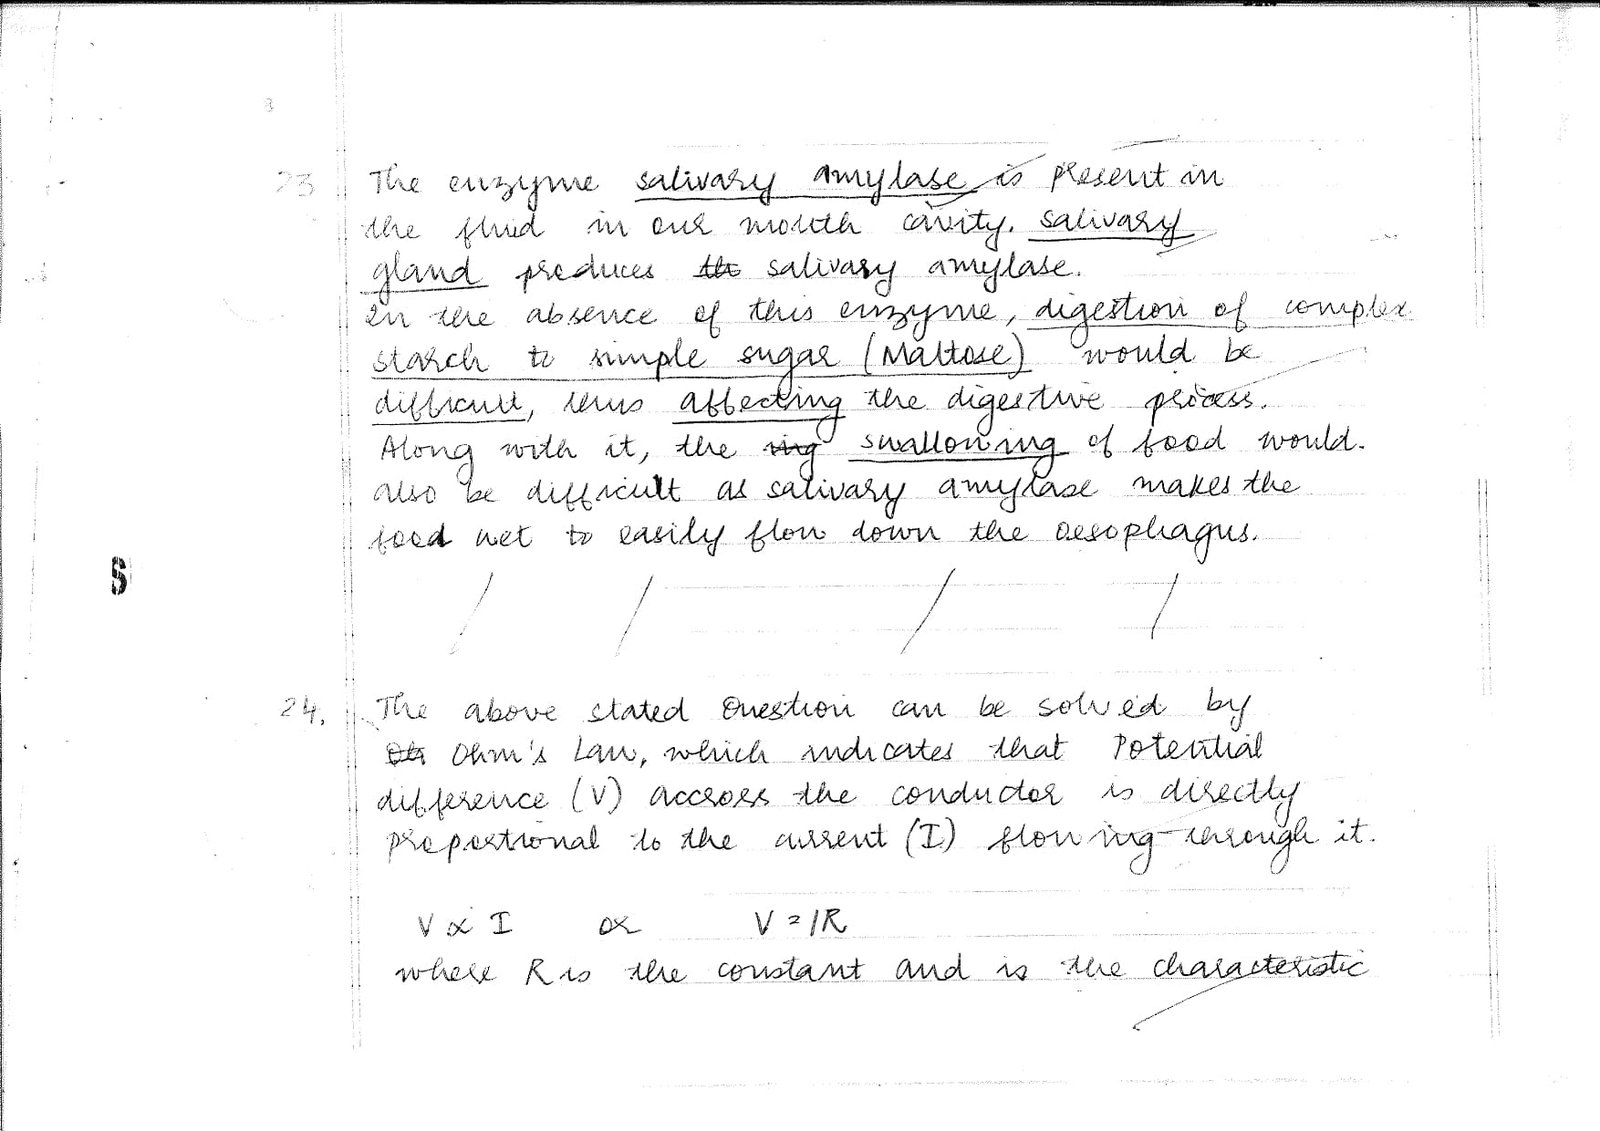 23 The enzyme salivary amylase is present in
the fluid in our mouth cavity. salivary
gland produces th salivary amylase.
In the absence of this enzyme, digestion of complex
starch to simple sugar (Maltose) would be
difficult, thus affecting the digestive process.
Along with it, the ing swallowing of food would.
also be difficult as salivary amylase makes the
food wet to easily flow down the oesophagus.
S
24. The above stated Question can be solved by
Oh Ohm's Law, which indicates that Potential
difference (V) accross the conductor is directly
proportional to the current (I) flowing through it.
V ∝ I or V = IR
where R is the constant and is the characteristic